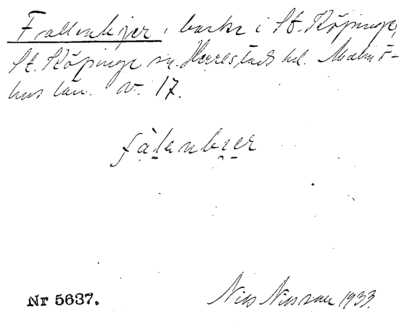 Frallenkjer, backe i St. Köpinge,
St. Köpinge sn. Herrestads hd. Malmö-
hus län. v. 17.
fàlanbær
Nr 5637.
Nils Nilsson 1933.